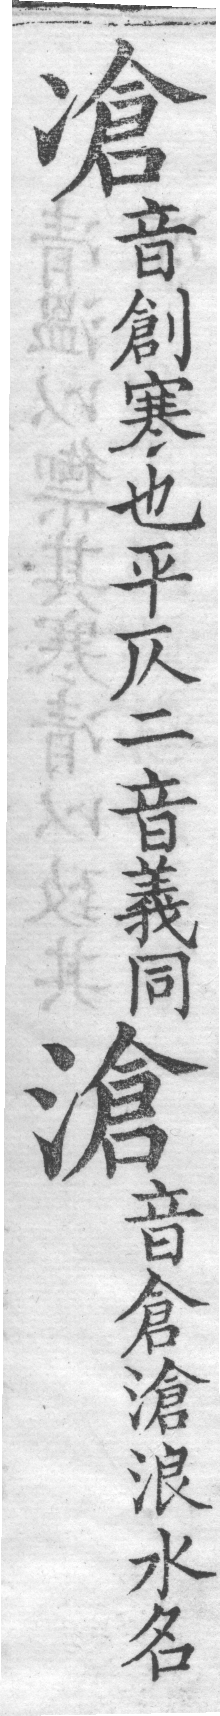 凔音創寒也平仄二音義同滄音倉滄浪水名